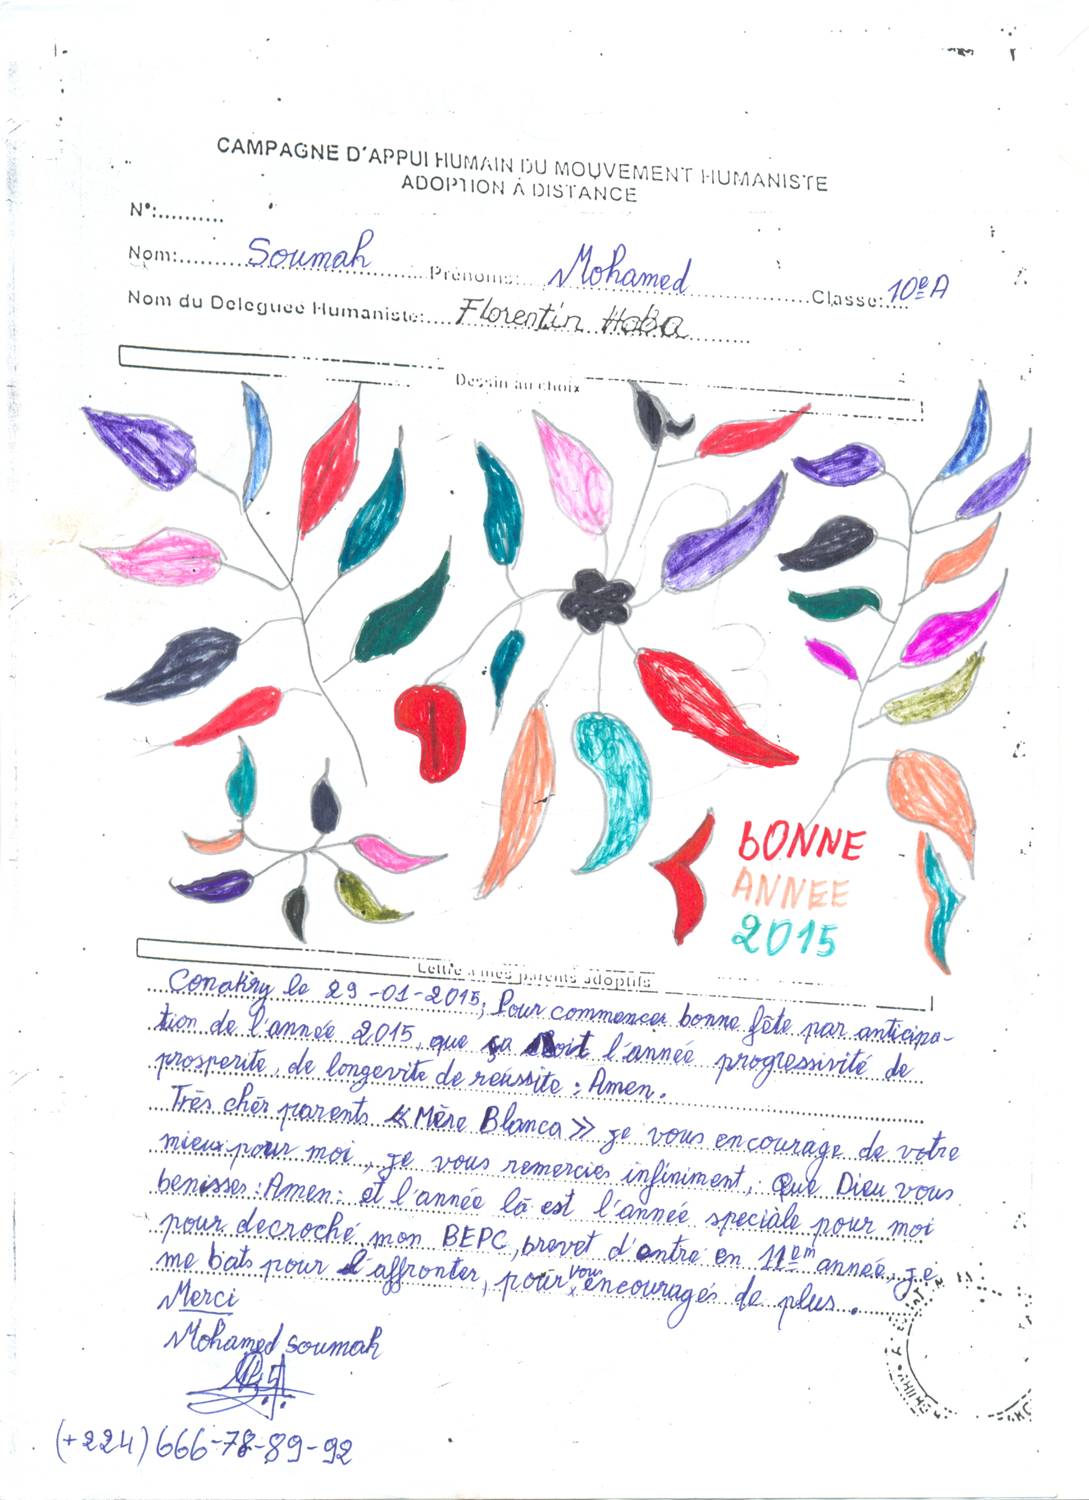 CAMPAGNE D'APPUI HUMAIN DU MOUVEMENT HUMANISTE
ADOPTION A DISTANCE
N°:..........
Nom:....Soumah....Prénoms:..Mohamed....Classe:10e A
Nom du Deleguée Humaniste:....Florentin Haba....
Dessin au choix
bONNE
ANNEE
2015
Lettre à mes parents adoptifs
Conakry le 29-01-2015; Pour commencer bonne fête par anticipa-
tion de l'année 2015, que ça soit l'année progressivité de
prosperité, de longevité de réussite : Amen.
Très chér parents « Mère Blanca » je vous encourage de votre
mieux pour moi, je vous remercies infiniment, Que Dieu vous
benisses : Amen : et l'année là est l'année speciale pour moi
pour decroché mon BEPC, brevet d'entré en 11em année, je
me bats pour l'affronter, pour vous encouragés de plus.
Merci
Mohamed Soumah
(+224) 666-78-89-92